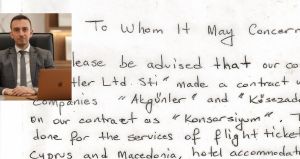 To Whom It May Concern
lease be advised that our co
tler Ltd. Sti" made a contract
ompanies "Akgünler" and "Kösezad
on our contract as "Konsorsiyum". T
done for the services of flight ticket
Cyprus and Macedonia, hotel accommodat